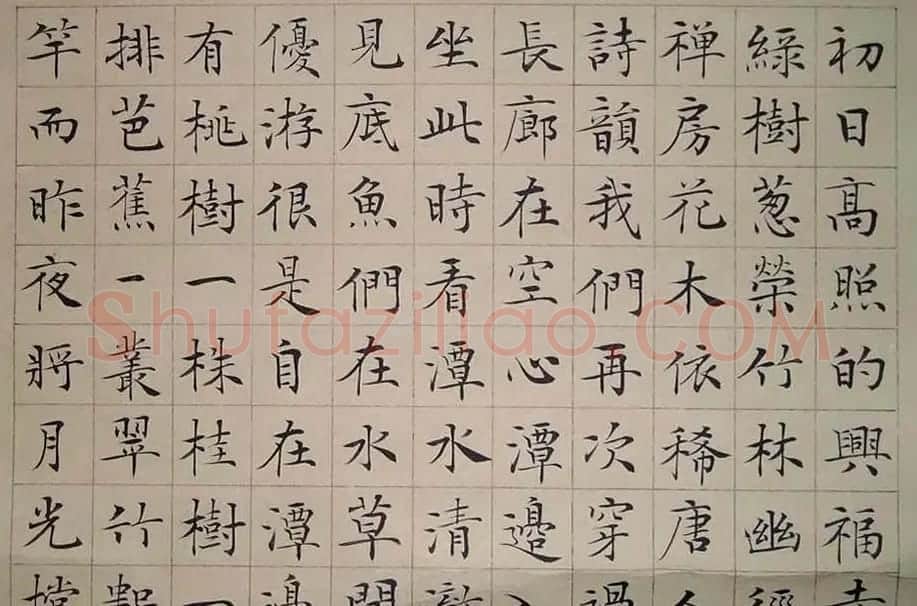 初日髙照的興福寺
綠樹葱榮竹林幽徑
禅房花木依稀唐人
詩韻我們再次穿過
長廊在空心潭邊入
坐此時看潭水清澈
見底魚們在水草間
優游很是自在潭邊
有桃樹一株桂樹一
排芭蕉一叢翠竹數
竿而昨夜將月光
Shufaziliao.COM